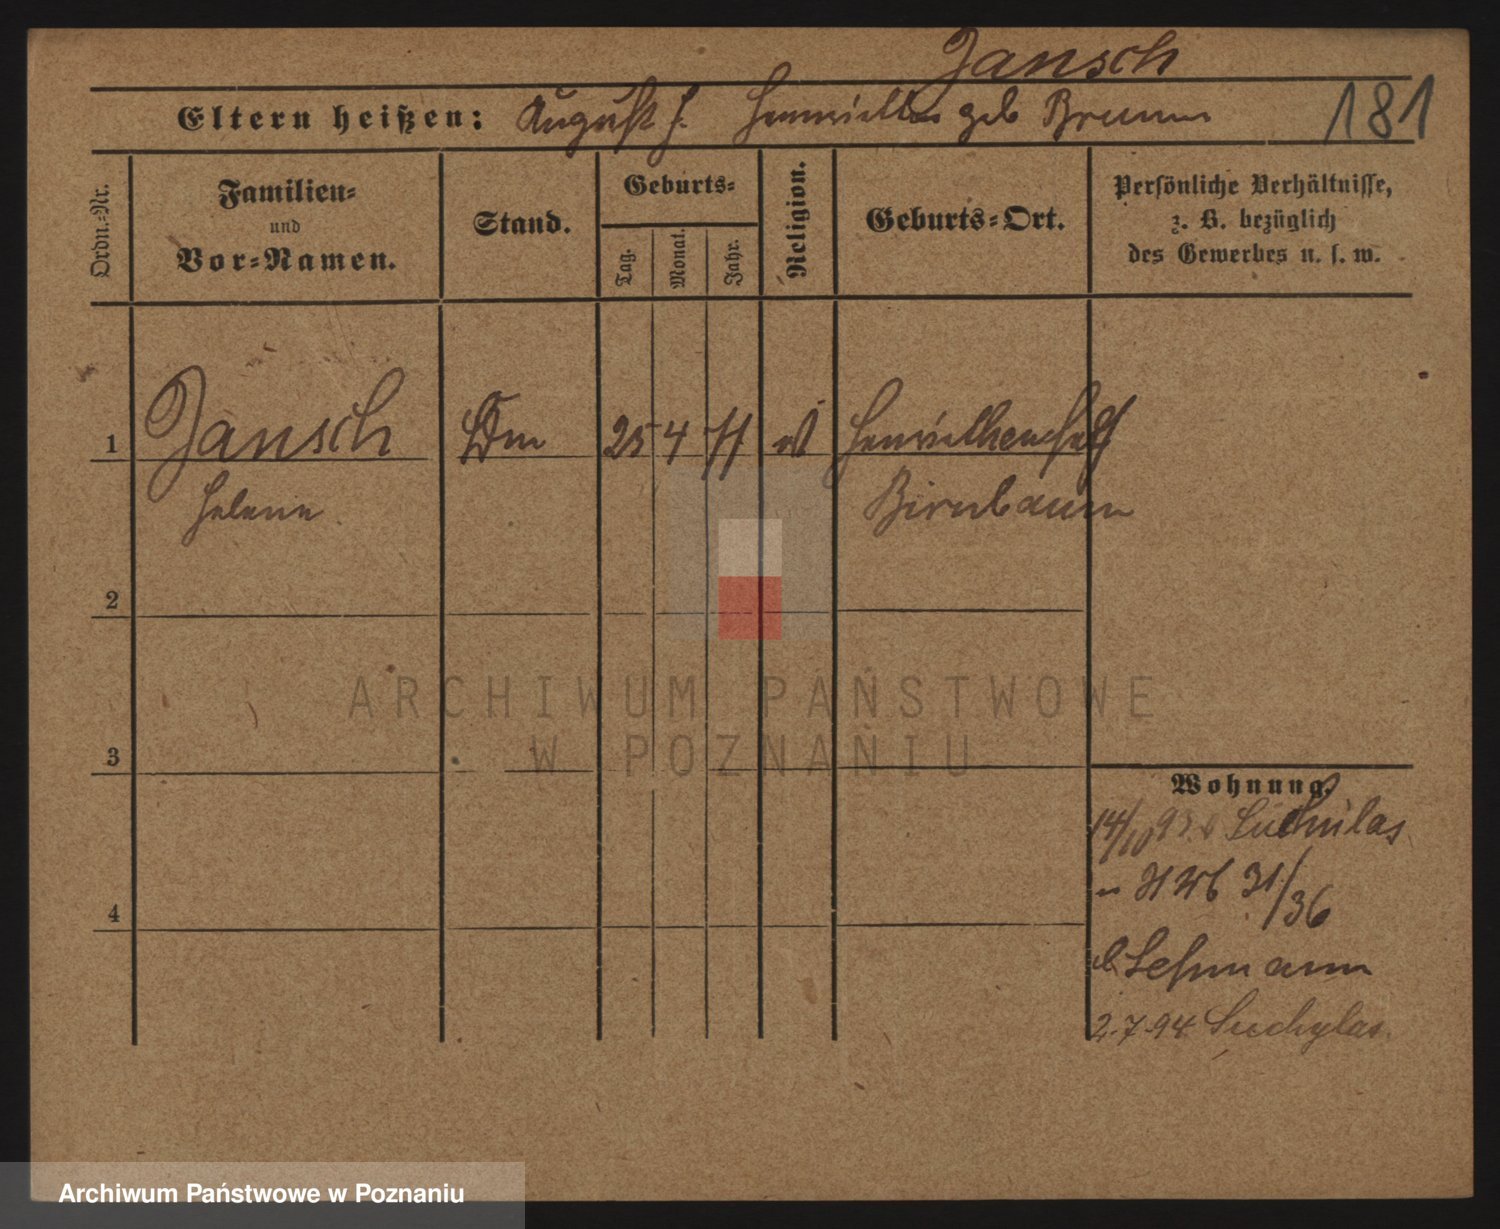 Jansch
Eltern heißen: August J. Henriette geb Braun
181
Ordn.-Nr.
Familien-
und
Vor-Namen.
Stand.
Geburts-
Tag.
Monat.
Jahr.
Religion.
Geburts-Ort.
Persönliche Verhältnisse,
z. B. bezüglich
des Gewerbes u. s. w.
1 Jansch 25 4 71
Helene
Birnbaum
2
3
4
Wohnung.
14/10 93 Suchilas
31/36
Lehmann
2.7.94 Suchylas
ARCHIWUM PAŃSTWOWE
W POZNANIU
Archiwum Państwowe w Poznaniu